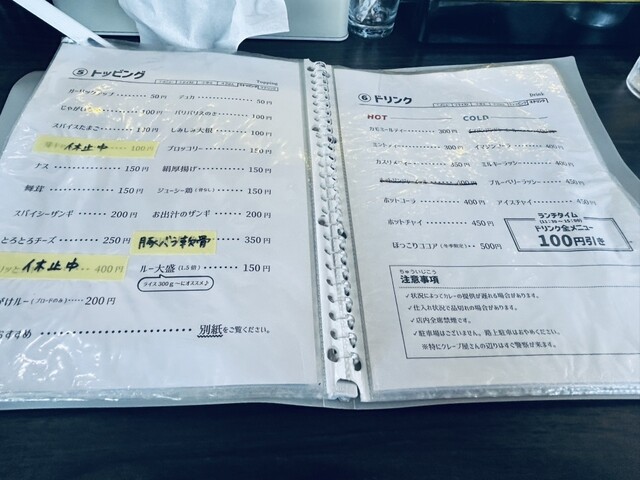 ⑤ トッピング
Topping
ガーリックチップ 50円
ジュカ 50円
じゃがいも 100円
パリパリスのき 100円
スパイスたまご 120円
しみしみ大根 100円
休止中 100円
ブロッコリー 150円
ナス 150円
絹厚揚げ 150円
舞茸 150円
ジューシー鶏 150円
スパイシーザンギ 200円
お出汁のザンギ 200円
とろとろチーズ 250円
豚バラ軟骨 350円
休止中 400円
ルー大盛(1.5倍) 150円
ライス300g～にオススメ♪
がけルー(ブロードのみ) 200円
おすすめ 別紙をご覧ください。
⑥ ドリンク
Drink
HOT
COLD
カモミールティー 300円
ミントティー 300円
400円
カスリメティー 350円
ミルキーラッシー 400円
ブルーベリーラッシー 450円
ホットコーラ 400円
アイスチャイ 450円
ホットチャイ 450円
ほっこりココア(冬季限定) 500円
ランチタイム
(11:30～15:00)
ドリンク全メニュー
100円引き
ちゅういじこう
注意事項
✓状況によってカレーの提供が遅れる場合があります。
✓仕入れ状況で品切れの場合があります。
✓店内全席禁煙です。
✓駐車場はございません。路上駐車はおやめください。
※特にクレープ屋さんの辺りはすぐ警察が来ます。